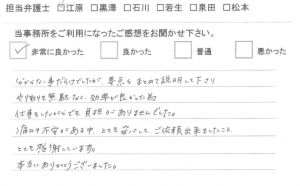 担当弁護士 □江原 □黒澤 □石川 □若生 □泉田 □松本
当事務所をご利用になったご感想をお聞かせ下さい。
☑ 非常に良かった □ 良かった □ 普通 □ 悪かった
分からない事だらけでしたが、要点をまとめて説明して下さり
やり取りも無駄なく、効率が良かった為
仕事をしながらでも負担がありませんでした。
痛みや不安がある中、とても安心して、ご依頼出来ましたこと、
とても感謝しています。
本当にありがとうございました。